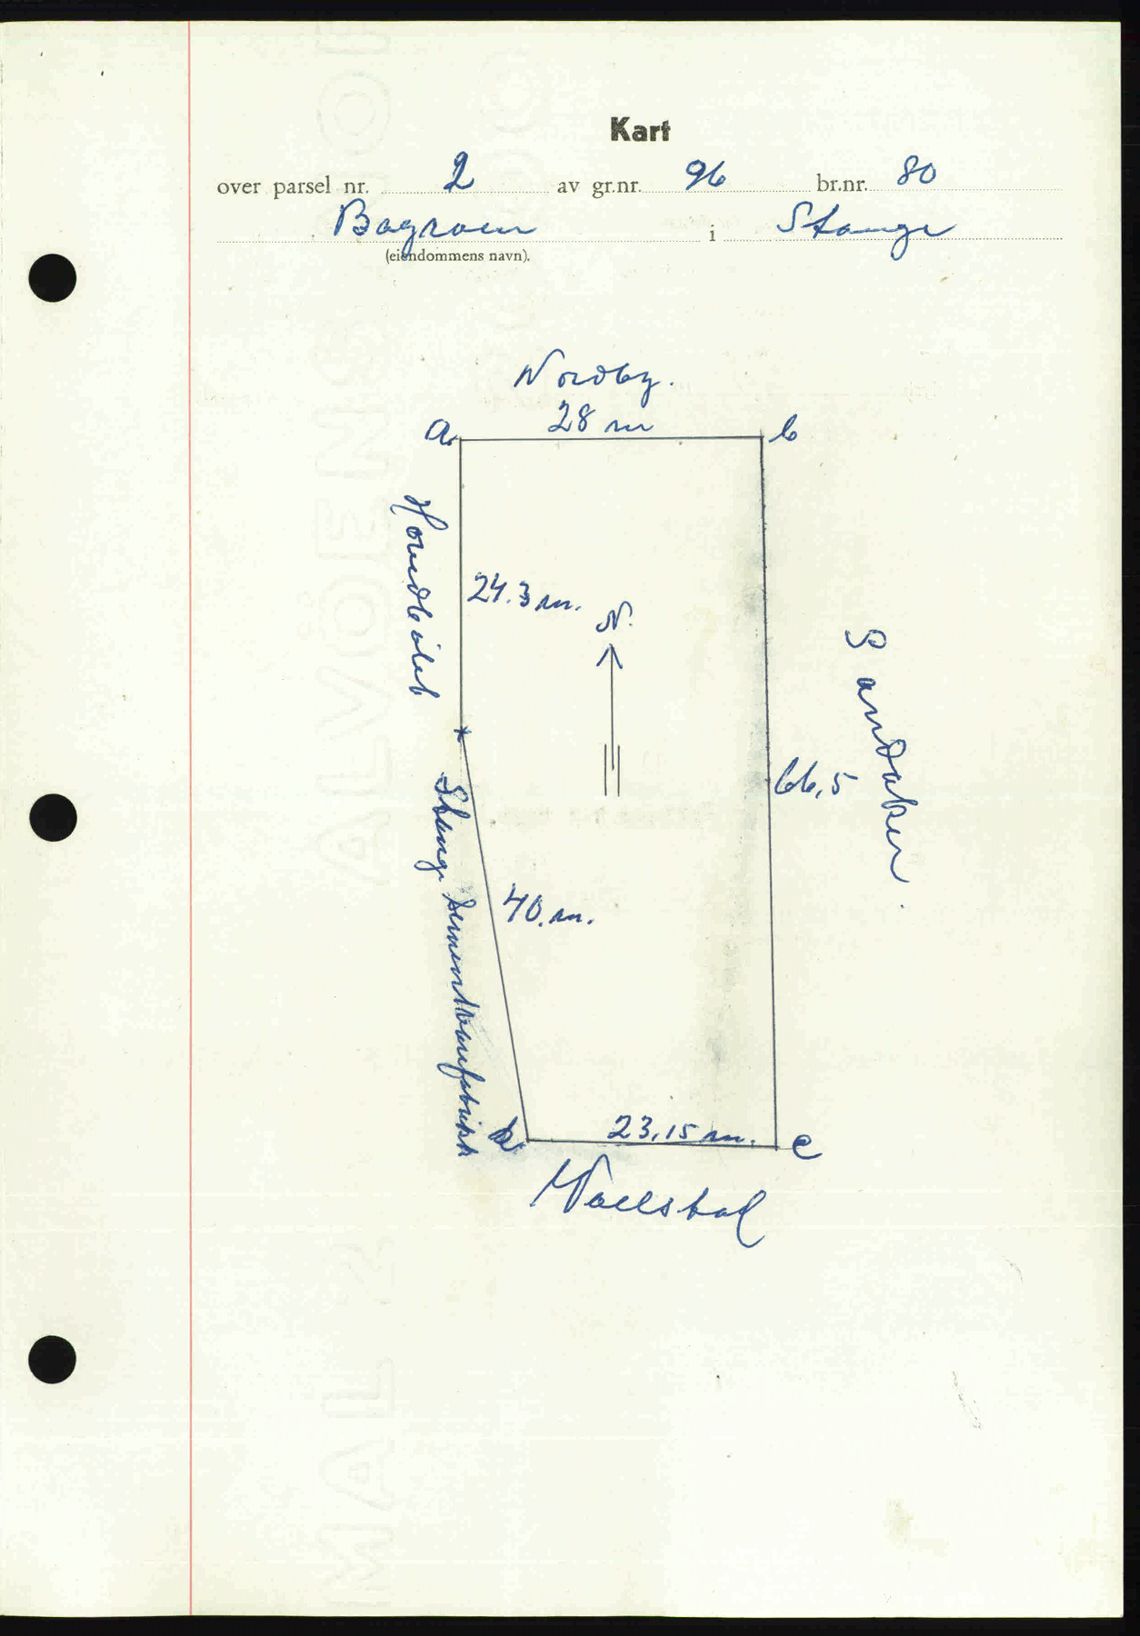 Kart
over parsel nr. 2 av gr.nr. 96 br.nr. 80
Bagroen i Stange
(eiendommens navn).
Nordby.
28 m
a. b
Hovedbölet
24.3 m.
N.
Sandaker.
66,5
Stange Sementvarefabrikk
40.m.
23,15 m.
c
Vollstad